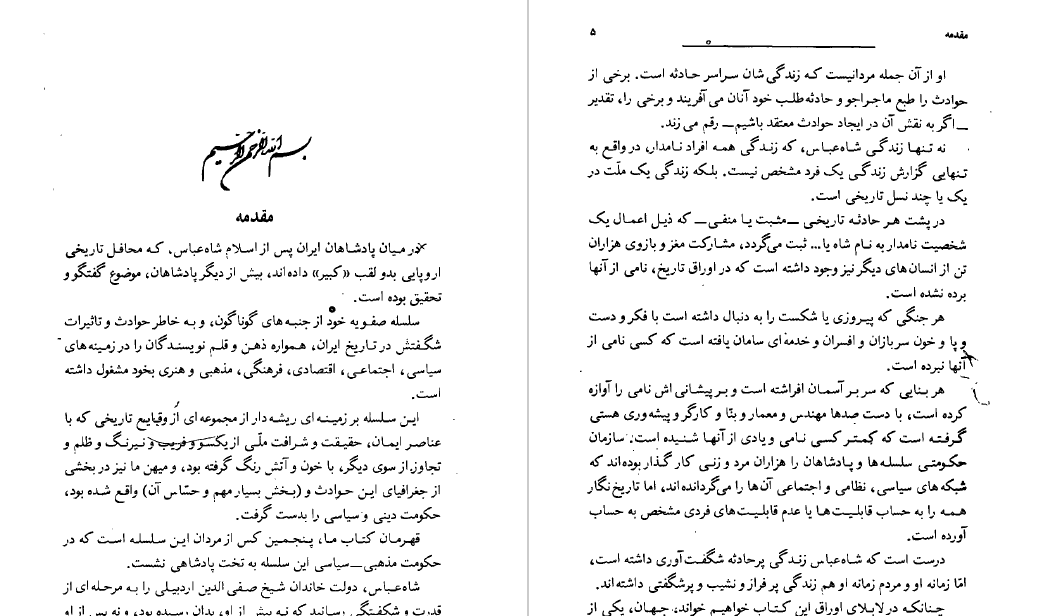 بسم الله الرحمن الرحیم
مقدمه
در میان پادشاهان ایران پس از اسلام شاه‌عباس، که محافل تاریخی
اروپایی بدو لقب «کبیر» داده‌اند، بیش از دیگر پادشاهان، موضوع گفتگو و
تحقیق بوده است.
سلسله صفویه خود از جنبه‌های گوناگون، و به خاطر حوادث و تاثیرات
شگفتش در تاریخ ایران، همواره ذهن و قلم نویسندگان را در زمینه‌های
سیاسی، اجتماعی، اقتصادی، فرهنگی، مذهبی و هنری بخود مشغول داشته
است.
این سلسله بر زمینه‌ای ریشه‌دار از مجموعه‌ای از وقایع تاریخی که با
عناصر ایمان، حقیقت و شرافت ملّی از یکسو و فریب و نیرنگ و ظلم و
تجاوز از سوی دیگر، با خون و آتش رنگ گرفته بود، و میهن ما نیز در بخشی
از جغرافیای این حوادث و (بخش بسیار مهم و حسّاس آن) واقع شده بود،
حکومت دینی و سیاسی را بدست گرفت.
قهرمان کتاب ما، پنجمین کس از مردان این سلسله است که در
حکومت مذهبی—سیاسی این سلسله به تخت پادشاهی نشست.
شاه‌عباس، دولت خاندان شیخ صفی الدین اردبیلی را به مرحله‌ای از
قدرت و شکفتگی رسانید که نه پیش از او، بدان رسیده بود، و نه پس از او
مقدمه
۵
او از آن جمله مردانیست که زندگی شان سراسر حادثه است. برخی از
حوادث را طبع ماجراجو و حادثه‌طلب خود آنان می‌آفریند و برخی را، تقدیر
—اگر به نقش آن در ایجاد حوادث معتقد باشیم— رقم می‌زند.
نه تنها زندگی شاه‌عباس، که زندگی همه افراد نامدار، در واقع به
تنهایی گزارش زندگی یک فرد مشخص نیست. بلکه زندگی یک ملّت در
یک یا چند نسل تاریخی است.
در پشت هر حادثه تاریخی —مثبت یا منفی— که ذیل اعمال یک
شخصیت نامدار به نام شاه یا... ثبت می‌گردد، مشارکت مغز و بازوی هزاران
تن از انسان‌های دیگر نیز وجود داشته است که در اوراق تاریخ، نامی از آنها
برده نشده است.
هر جنگی که پیروزی یا شکست را به دنبال داشته است با فکر و دست
و پا و خون سربازان و افسران و خدمه‌ای سامان یافته است که کسی نامی از
آنها نبرده است.
هر بنایی که سر بر آسمان افراشته است و بر پیشانی‌اش نامی را آوازه
کرده است، با دست صدها مهندس و معمار و بنّا و کارگر و پیشه‌وری هستی
گرفته است که کمتر کسی نامی و یادی از آنها شنیده است. سازمان
حکومتی سلسله‌ها و پادشاهان را هزاران مرد و زنی کار گذار بوده‌اند که
شبکه‌های سیاسی، نظامی و اجتماعی آن‌ها را می‌گردانده‌اند، اما تاریخ نگار
همه را به حساب قابلیت‌ها یا عدم قابلیت‌های فردی مشخص به حساب
آورده است.
درست است که شاه‌عباس زندگی پرحادثه شگفت‌آوری داشته است،
امّا زمانه او و مردم زمانه او هم زندگی پر فراز و نشیب و پرشگفتی داشته‌اند.
چنانکه در لابلای اوراق این کتاب خواهیم خواند، جهان، یکی از